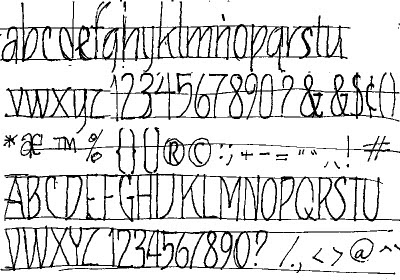 abcdefghijklmnopqrstu
vwxyz 1234567890?&&$¢()
*æ™%{}[]®©:;+-=""‚.!#
ABCDEFGHIJKLMNOPQRSTU
VWXYZ 1234567890? /.,<>@^~